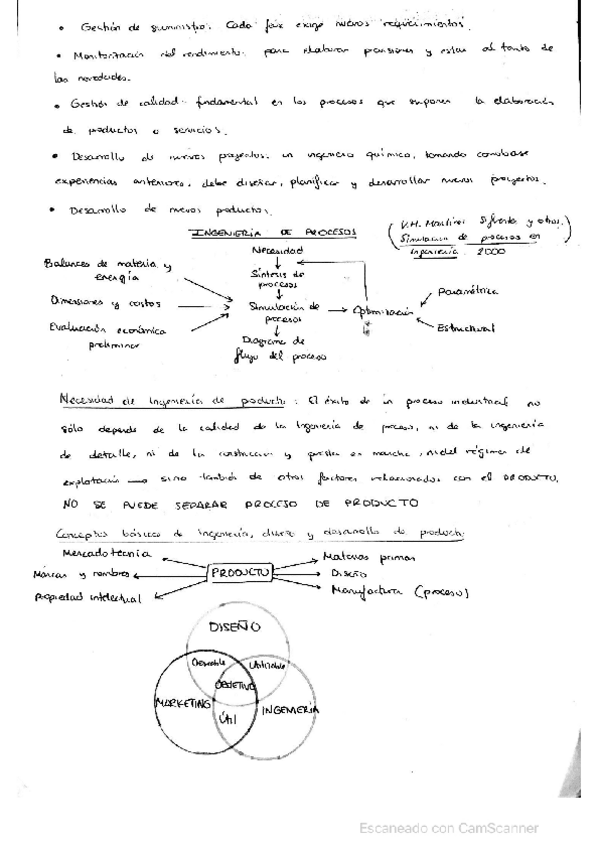 • Gestión de suministro: Cada fase exige nuevos requerimientos.
• Monitorización del rendimiento: para elaborar previsiones y estar al tanto de
las novedades.
• Gestión de calidad: fundamental en los procesos que suponen la elaboración
de productos o servicios.
• Desarrollo de nuevos proyectos: un ingeniero químico, tomando como base
experiencias anteriores, debe diseñar, planificar y desarrollar nuevos proyectos.
• Desarrollo de nuevos productos.
INGENIERÍA DE PROCESOS
(V.H. Martínez Sifuentes y otros.
Simulacion de procesos en
ingeniería 2000)
Necesidad
Balances de materia y
energía
Síntesis de
procesos
Dimensiones y costos
Simulación de
procesos
Optimización
Paramétrica
Estructural
Evaluación económica
preliminar
Diagrama de
flujo del proceso
Necesidad de Ingeniería de producto: El éxito de un proceso industrial no
sólo depende de la calidad de la Ingeniería de proceso, ni de la ingeniería
de detalle, ni de la construccion y puesta en marcha, ni del régimen de
explotación → sino también de otros factores relacionados con el PRODUCTO.
NO SE PUEDE SEPARAR PROCESO DE PRODUCTO
Conceptos básicos de Ingeniería, diseño y desarrollo de producto:
Mercadotecnia
Marcas y nombres
Propiedad intelectual
PRODUCTO
Materias primas
Diseño
Manufactura (proceso)
DISEÑO
Deseable
Utilizable
OBJETIVO
MARKETING
INGENIERÍA
Útil
Escaneado con CamScanner